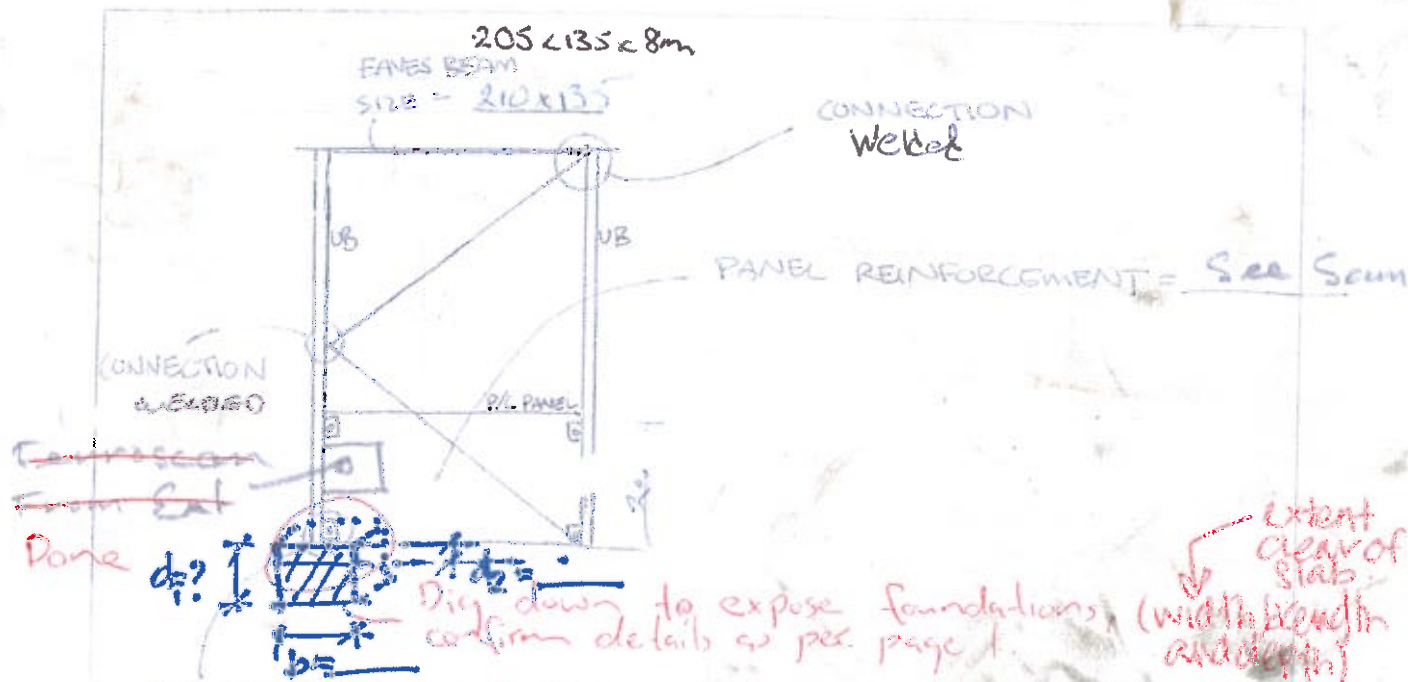 205 x 135 x 8mm
EAVES BEAM
SIZE = 210 x 135
CONNECTION
Welded
UB
UB
PANEL REINFORCEMENT = See Scan
CONNECTION
WELDED
P/C PANEL
Ferroscan
From Ext
Done
d₁=?
d₂ =
b =
Dig down to expose foundations,
confirm details as per page 1.
extent
clear of
slab.
(width breadth
and depth)